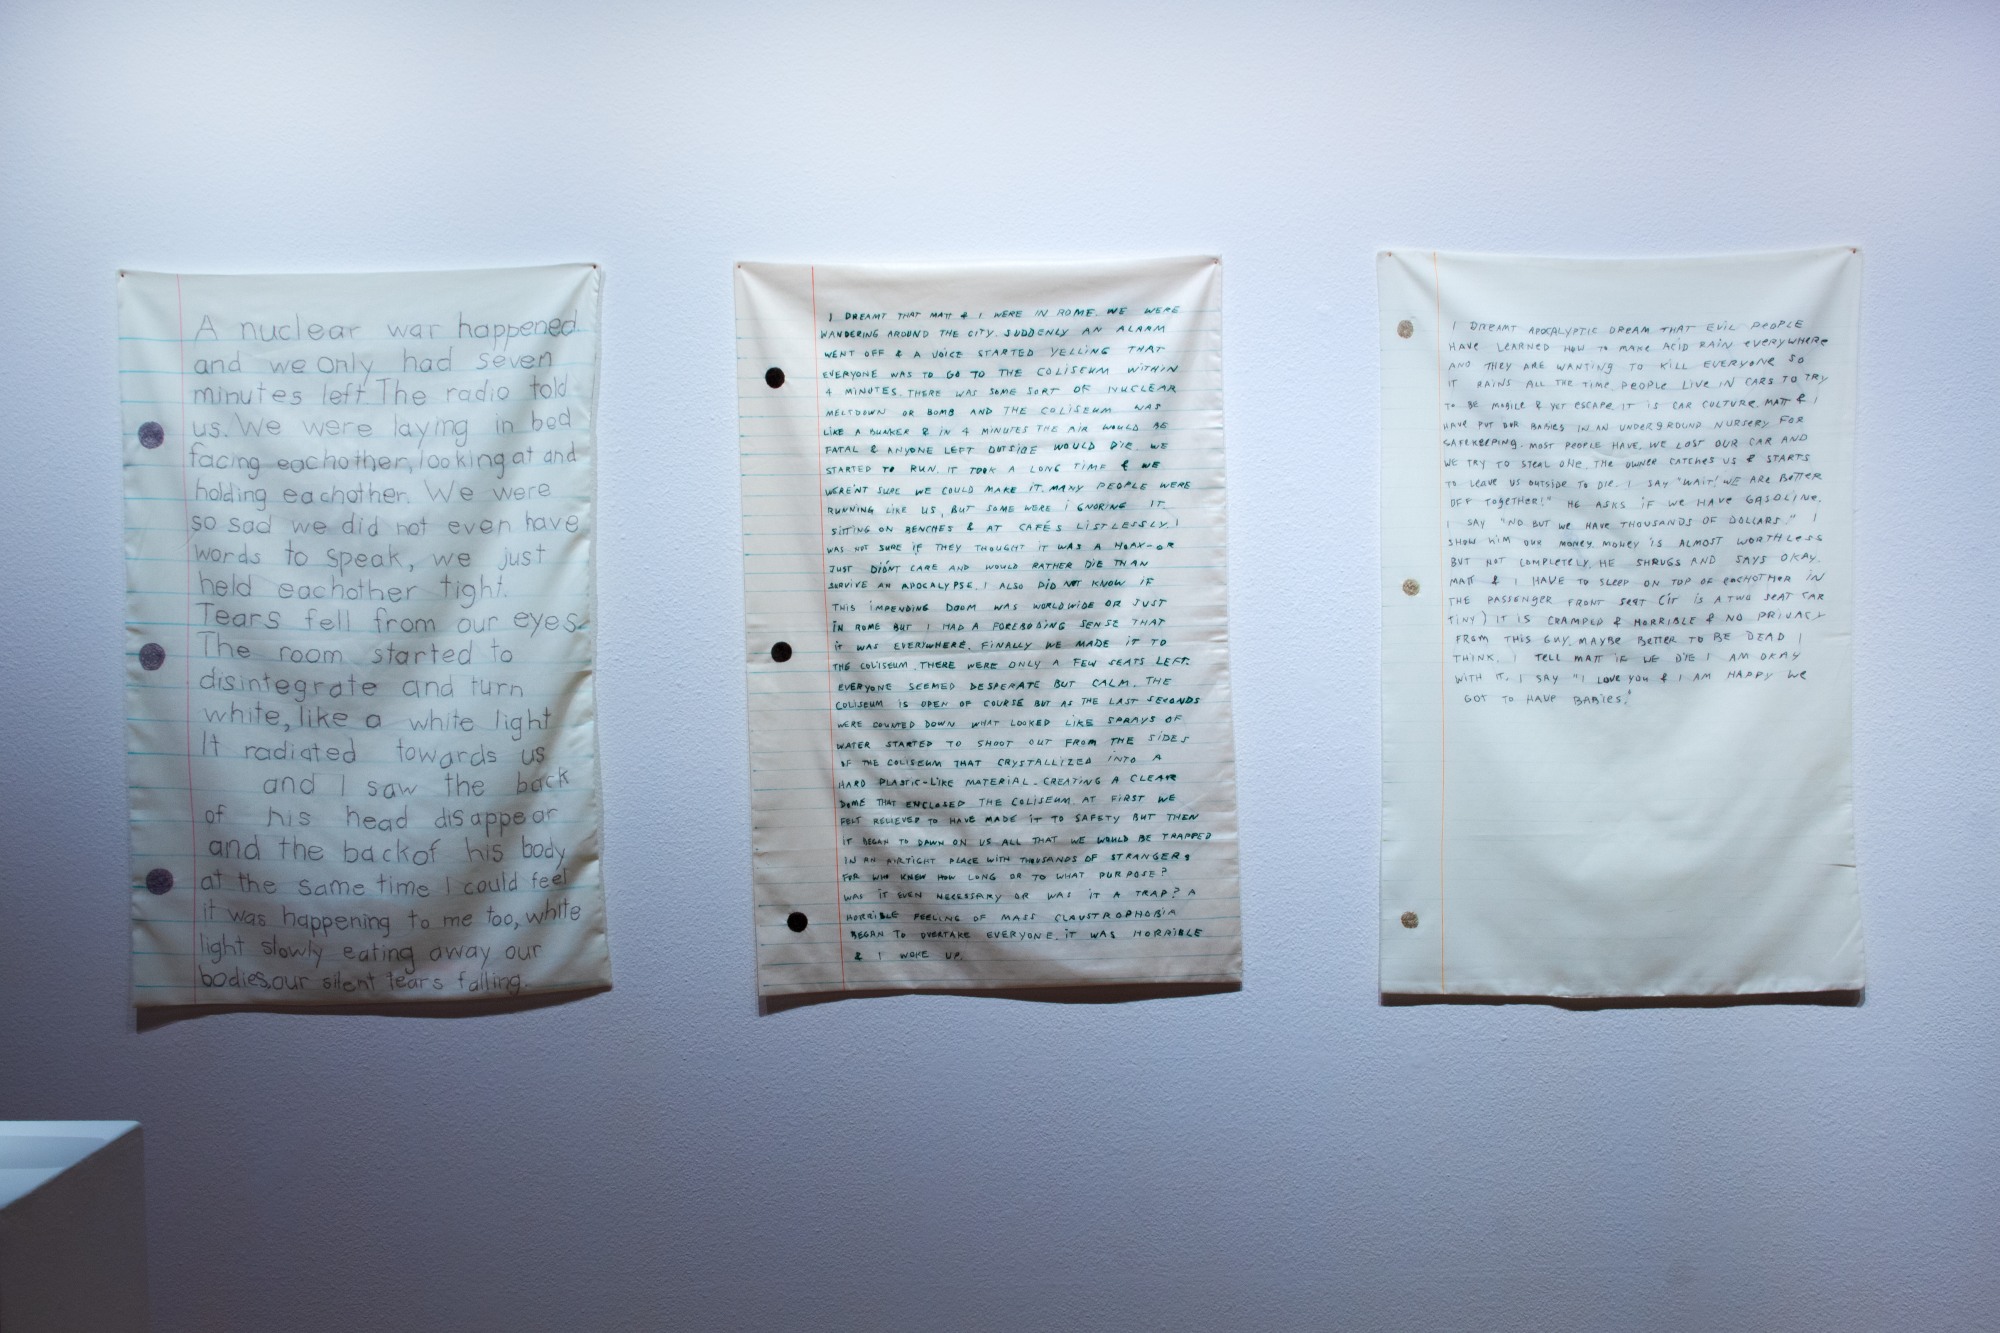 A nuclear war happened
and we only had seven
minutes left The radio told
us. We were laying in bed
facing eachother, looking at and
holding eachother. We were
so sad we did not even have
words to speak, we just
held eachother tight.
Tears fell from our eyes.
The room started to
disintegrate and turn
white, like a white light
It radiated towards us
and I saw the back
of his head disappear
and the back of his body
at the same time I could feel
it was happening to me too, white
light slowly eating away our
bodies, our silent tears falling.
I DREAMT THAT MATT & I WERE IN ROME. WE WERE
WANDERING AROUND THE CITY. SUDDENLY AN ALARM
WENT OFF & A VOICE STARTED YELLING THAT
EVERYONE WAS TO GO TO THE COLISEUM WITHIN
4 MINUTES. THERE WAS SOME SORT OF NUCLEAR
MELTDOWN OR BOMB AND THE COLISEUM WAS
LIKE A BUNKER & IN 4 MINUTES THE AIR WOULD BE
FATAL & ANYONE LEFT OUTSIDE WOULD DIE. WE
STARTED TO RUN. IT TOOK A LONG TIME & WE
WEREN'T SURE WE COULD MAKE IT. MANY PEOPLE WERE
RUNNING LIKE US, BUT SOME WERE IGNORING IT.
SITTING ON BENCHES & AT CAFÉS LISTLESSLY. I
WAS NOT SURE IF THEY THOUGHT IT WAS A HOAX-OR
JUST DIDN'T CARE AND WOULD RATHER DIE THAN
SURVIVE AN APOCALYPSE. I ALSO DID NOT KNOW IF
THIS IMPENDING DOOM WAS WORLDWIDE OR JUST
IN ROME BUT I HAD A FOREBODING SENSE THAT
IT WAS EVERYWHERE. FINALLY WE MADE IT TO
THE COLISEUM. THERE WERE ONLY A FEW SEATS LEFT.
EVERYONE SEEMED DESPERATE BUT CALM. THE
COLISEUM IS OPEN OF COURSE BUT AS THE LAST SECONDS
WERE COUNTED DOWN WHAT LOOKED LIKE SPRAYS OF
WATER STARTED TO SHOOT OUT FROM THE SIDES
OF THE COLISEUM THAT CRYSTALLIZED INTO A
HARD PLASTIC-LIKE MATERIAL. CREATING A CLEAR
DOME THAT ENCLOSED THE COLISEUM. AT FIRST WE
FELT RELIEVED TO HAVE MADE IT TO SAFETY BUT THEN
IT BEGAN TO DAWN ON US ALL THAT WE WOULD BE TRAPPED
IN AN AIRTIGHT PLACE WITH THOUSANDS OF STRANGERS
FOR WHO KNEW HOW LONG OR TO WHAT PURPOSE?
WAS IT EVEN NECESSARY OR WAS IT A TRAP? A
HORRIBLE FEELING OF MASS CLAUSTROPHOBIA
BEGAN TO OVERTAKE EVERYONE. IT WAS HORRIBLE
& I WOKE UP.
I DREAMT APOCALYPTIC DREAM THAT EVIL PEOPLE
HAVE LEARNED HOW TO MAKE ACID RAIN EVERYWHERE
AND THEY ARE WANTING TO KILL EVERYONE SO
IT RAINS ALL THE TIME. PEOPLE LIVE IN CARS TO TRY
TO BE MOBILE & YET ESCAPE. IT IS CAR CULTURE. MATT & I
HAVE PUT OUR BABIES IN AN UNDERGROUND NURSERY FOR
SAFEKEEPING. MOST PEOPLE HAVE. WE LOST OUR CAR AND
WE TRY TO STEAL ONE. THE OWNER CATCHES US & STARTS
TO LEAVE US OUTSIDE TO DIE. I SAY "WAIT! WE ARE BETTER
OFF TOGETHER!" HE ASKS IF WE HAVE GASOLINE.
I SAY "NO BUT WE HAVE THOUSANDS OF DOLLARS." I
SHOW HIM OUR MONEY. MONEY IS ALMOST WORTHLESS
BUT NOT COMPLETELY. HE SHRUGS AND SAYS OKAY.
MATT & I HAVE TO SLEEP ON TOP OF EACHOTHER IN
THE PASSENGER FRONT SEAT (IT IS A TWO SEAT CAR
TINY) IT IS CRAMPED & HORRIBLE & NO PRIVACY
FROM THIS GUY. MAYBE BETTER TO BE DEAD I
THINK. I TELL MATT IF WE DIE I AM OKAY
WITH IT. I SAY "I LOVE YOU & I AM HAPPY WE
GOT TO HAVE BABIES."